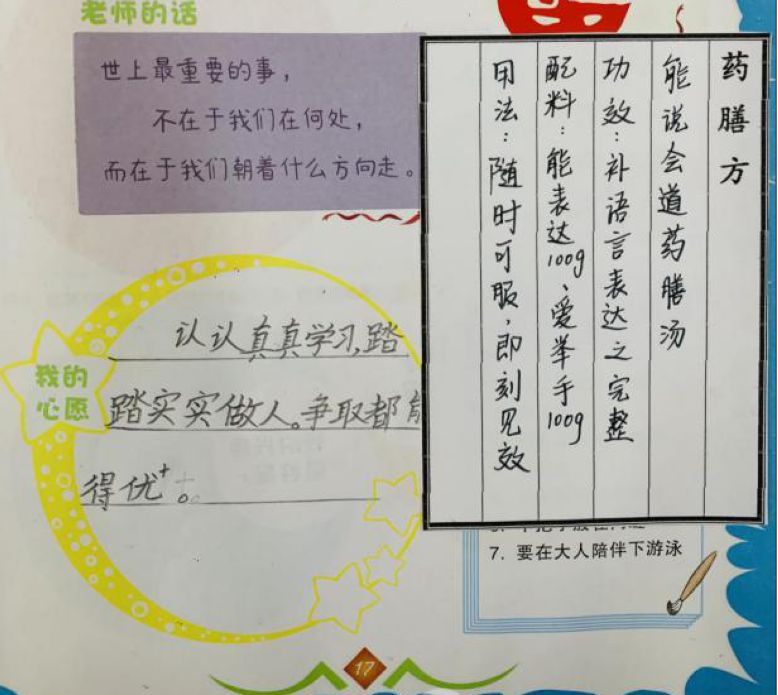 老师的话
世上最重要的事，
不在于我们在何处，
而在于我们朝着什么方向走。
药膳方
能说会道药膳汤
功效：补语言表达之完整
配料：能表达100g、爱举手100g
用法：随时可服，即刻见效
我的
心愿
认认真真学习，踏
踏实实做人。争取都能
得优⁺。
7. 要在大人陪伴下游泳
17